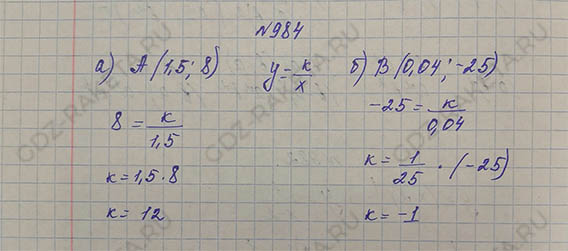 №984
а) А (1,5; 8) y = к/x б) В (0,04; -25)
8 = к/1,5
к = 1,5 · 8
к = 12
-25 = к/0,04
к = 1/25 · (-25)
к = -1
GDZ-RAKETA.RU